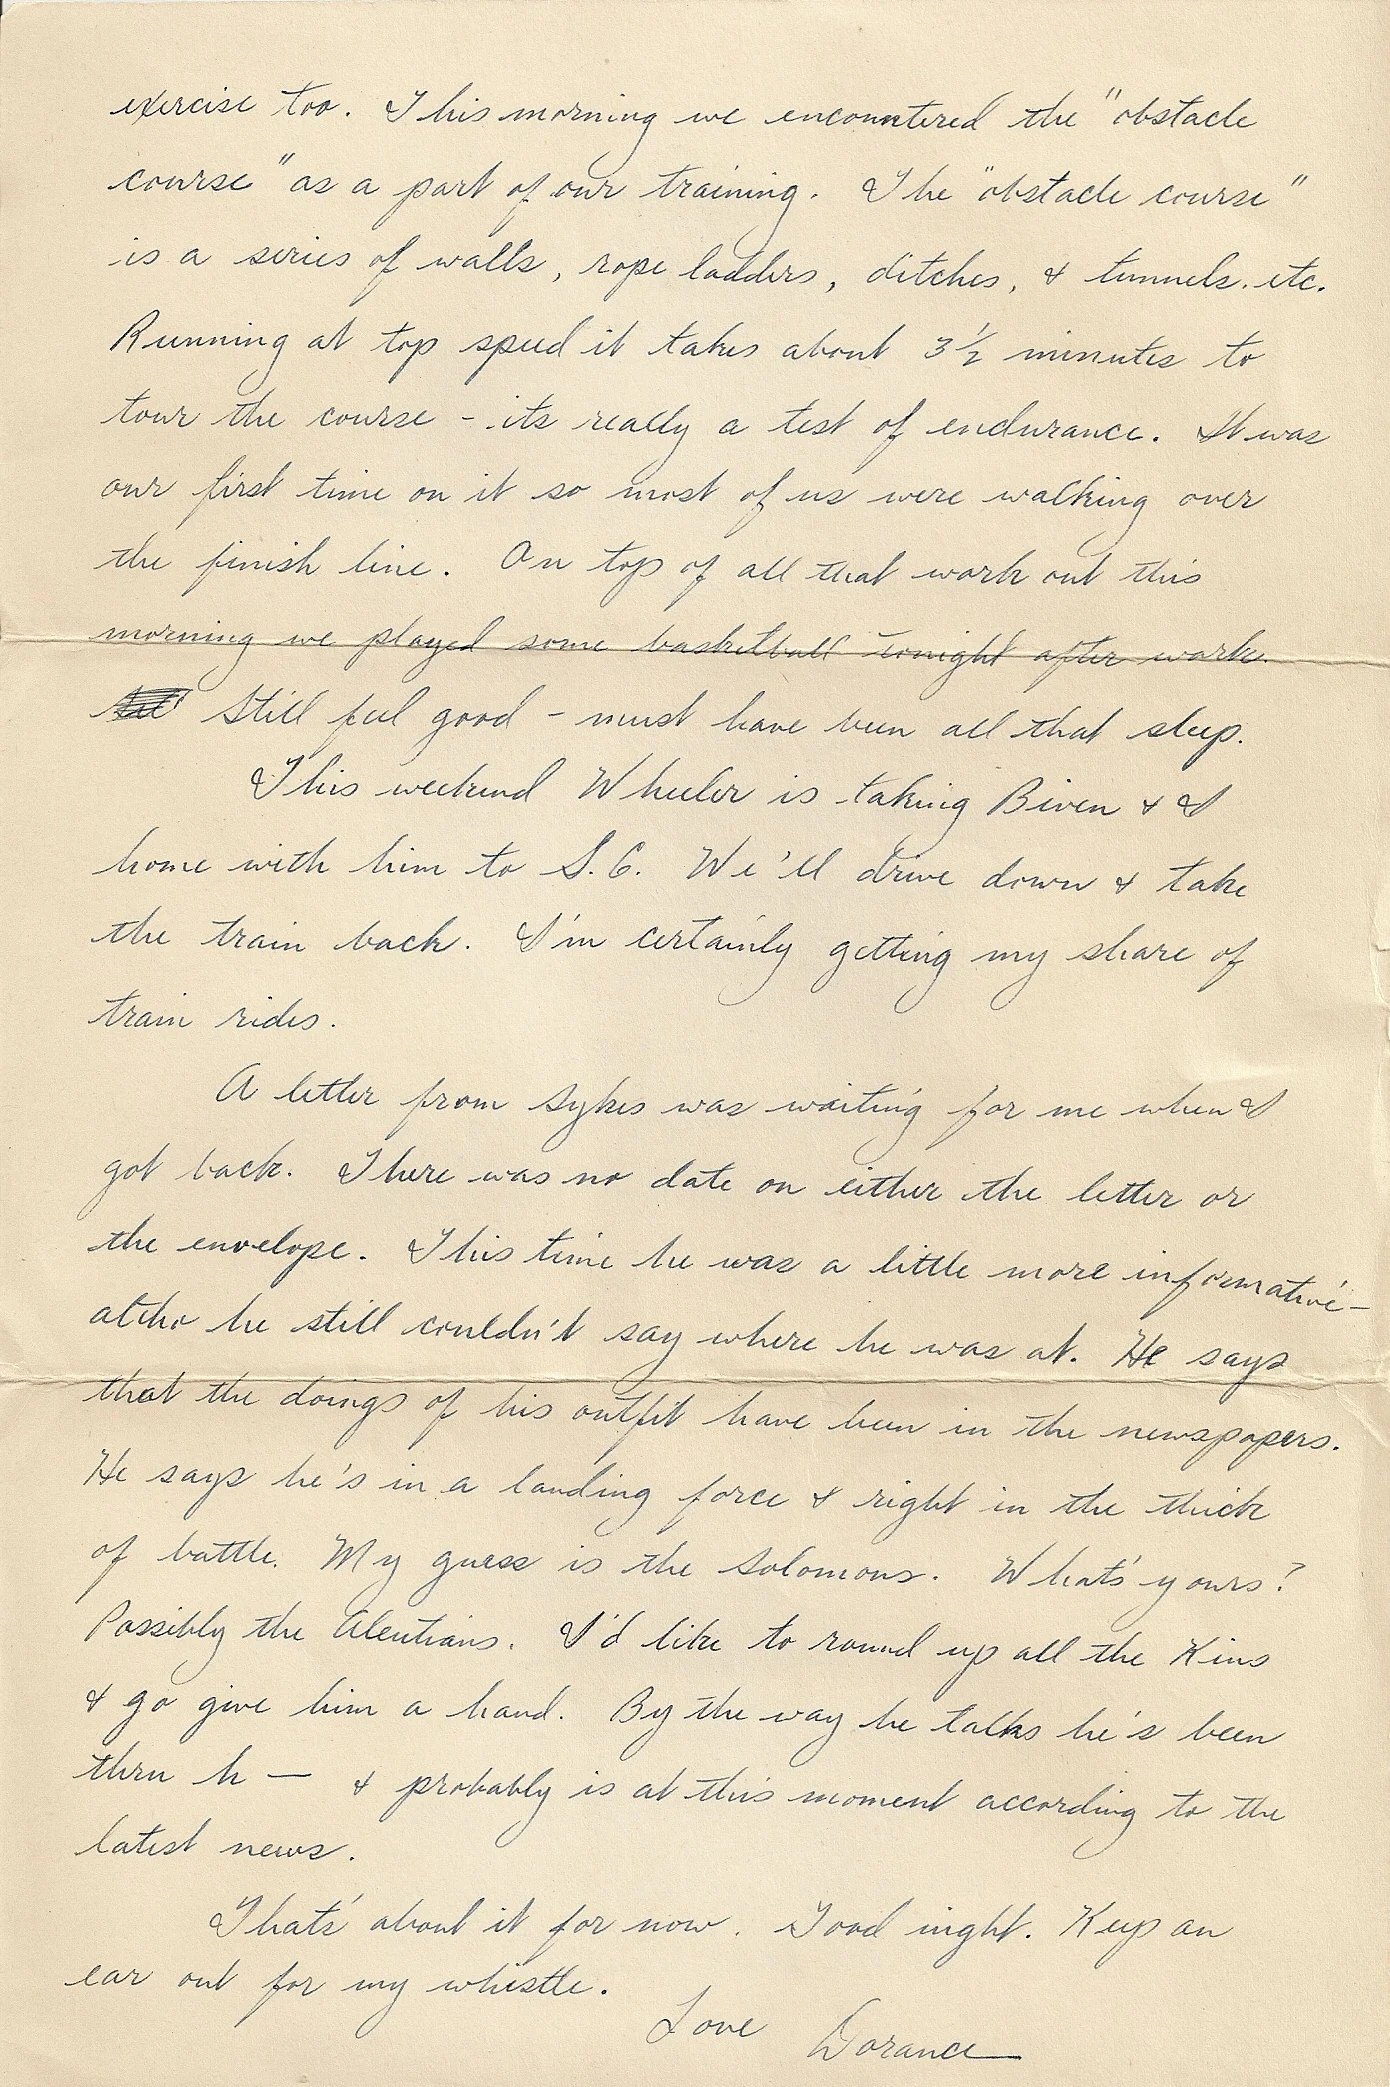 exercise too. This morning we encountered the "obstacle
course" as a part of our training. The "obstacle course"
is a series of walls, rope ladders, ditches, & tunnels. etc.
Running at top speed it takes about 3½ minutes to
tour the course - its really a test of endurance. It was
our first time on it so most of us were walking over
the finish line. On top of all that work out this
morning we played some basketball tonight after work.
Still feel good - must have been all that sleep.
This weekend Wheeler is taking Biven & I
home with him to S.C. We'll drive down & take
the train back. I'm certainly getting my share of
train rides.
A letter from Sykes was waiting for me when I
got back. There was no date on either the letter or
the envelope. This time he was a little more informative -
altho he still couldn't say where he was at. He says
that the doings of his outfit have been in the newspapers.
He says he's in a landing force & right in the thick
of battle. My guess is the Solomons. What's yours?
Possibly the Aleutians. I'd like to round up all the Kins
& go give him a hand. By the way he talks he's been
thru h— & probably is at this moment according to the
latest news.
That's about it for now. Good night. Keep an
ear out for my whistle.
Love Dorance